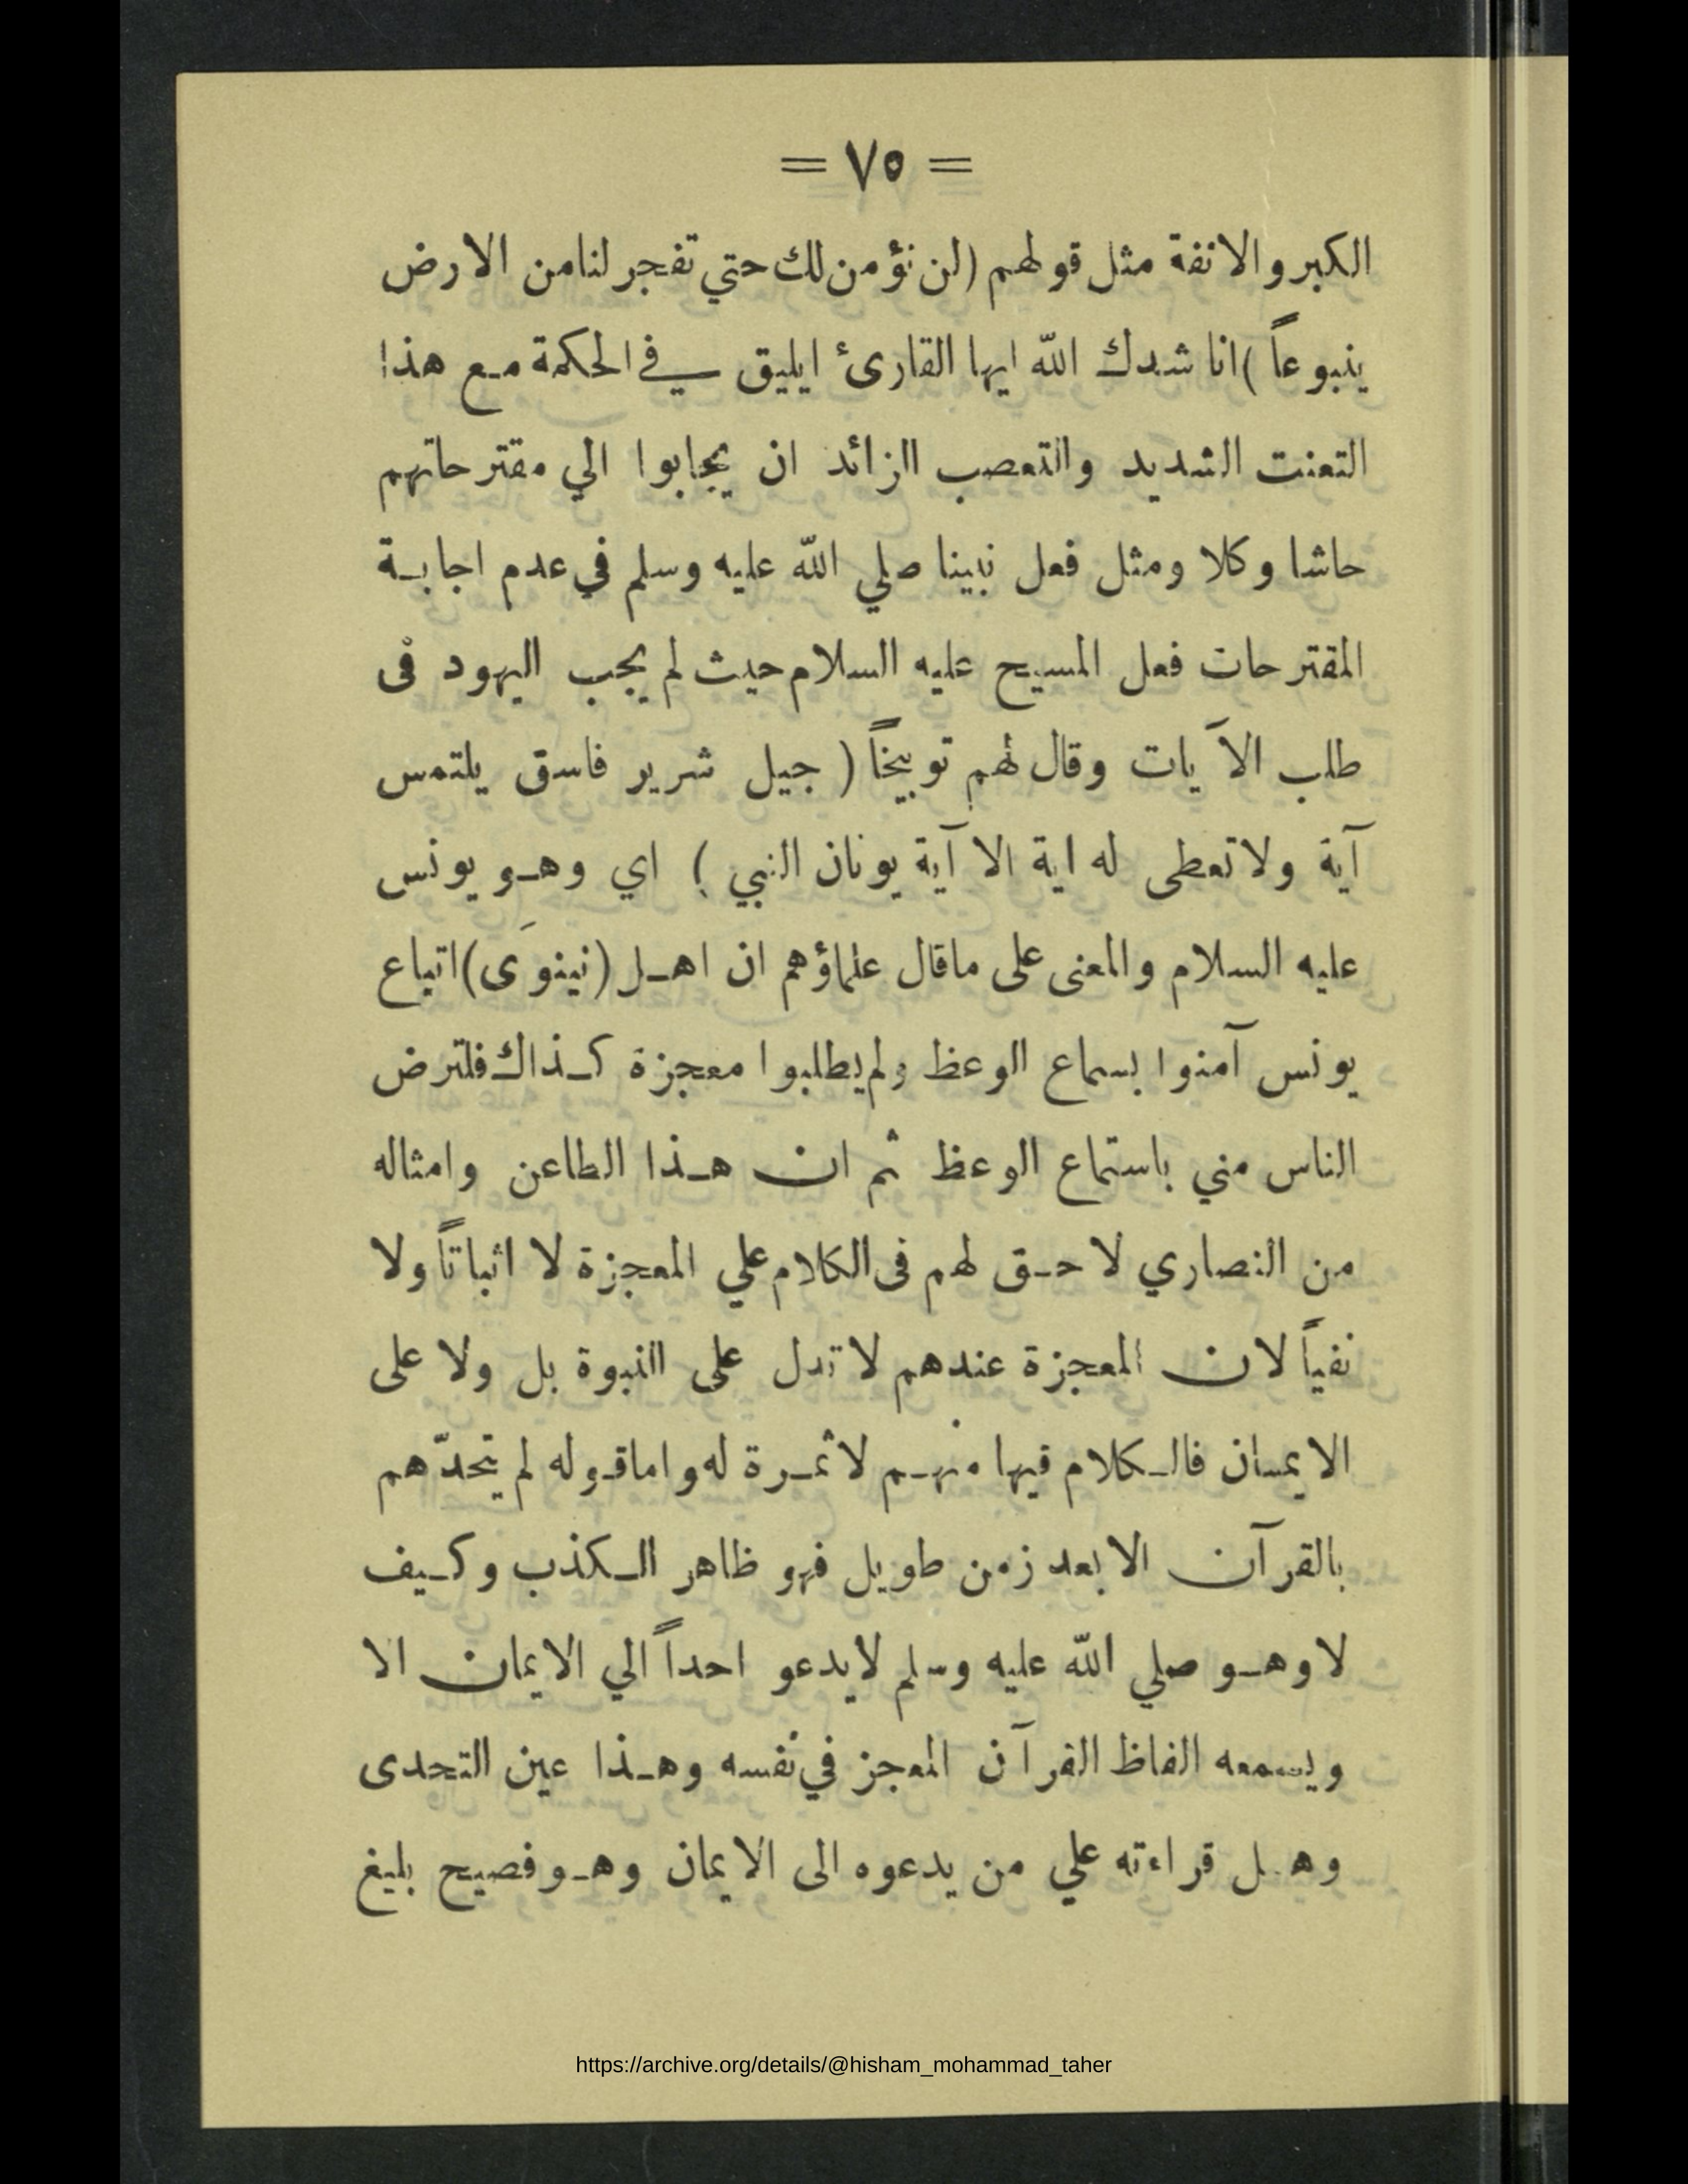 = ٧٥ =
الكبر والانفة مثل قولهم (لن نؤمن لك حتي تفجر لنا من الارض
ينبوعاً) انا شدك الله ايها القارئ ايليق في الحكمة مع هذا
التعنت الشديد والتعصب الزائد ان يجابوا الي مقترحاتهم
حاشا وكلا ومثل فعل نبينا صلي الله عليه وسلم في عدم اجابة
المقترحات فعل المسيح عليه السلام حيث لم يجب اليهود فى
طلب الآيات وقال لهم توبيخاً ( جيل شرير فاسق يلتمس
آية ولا تعطى له اية الا آية يونان النبي ) اي وهو يونس
عليه السلام والمعنى على ماقال علماؤهم ان اهل (نينوَى) اتباع
يونس آمنوا بسماع الوعظ ولم يطلبوا معجزة كذاك فلترض
الناس مني باستماع الوعظ ثم ان هذا الطاعن وامثاله
من النصاري لا حق لهم فى الكلام علي المعجزة لا اثباتاً ولا
نفياً لان المعجزة عندهم لا تدل على النبوة بل ولا على
الايمان فالكلام فيها منهم لا ثمرة له واما قوله لم يتحدّهم
بالقرآن الا بعد زمن طويل فهو ظاهر الكذب وكيف
لا وهو صلي الله عليه وسلم لا يدعو احداً الي الايمان الا
ويسمعه الفاظ القرآن المعجز في نفسه وهذا عين التحدى
وهل قراءته علي من يدعوه الى الايمان وهو فصيح بليغ
https://archive.org/details/@hisham_mohammad_taher